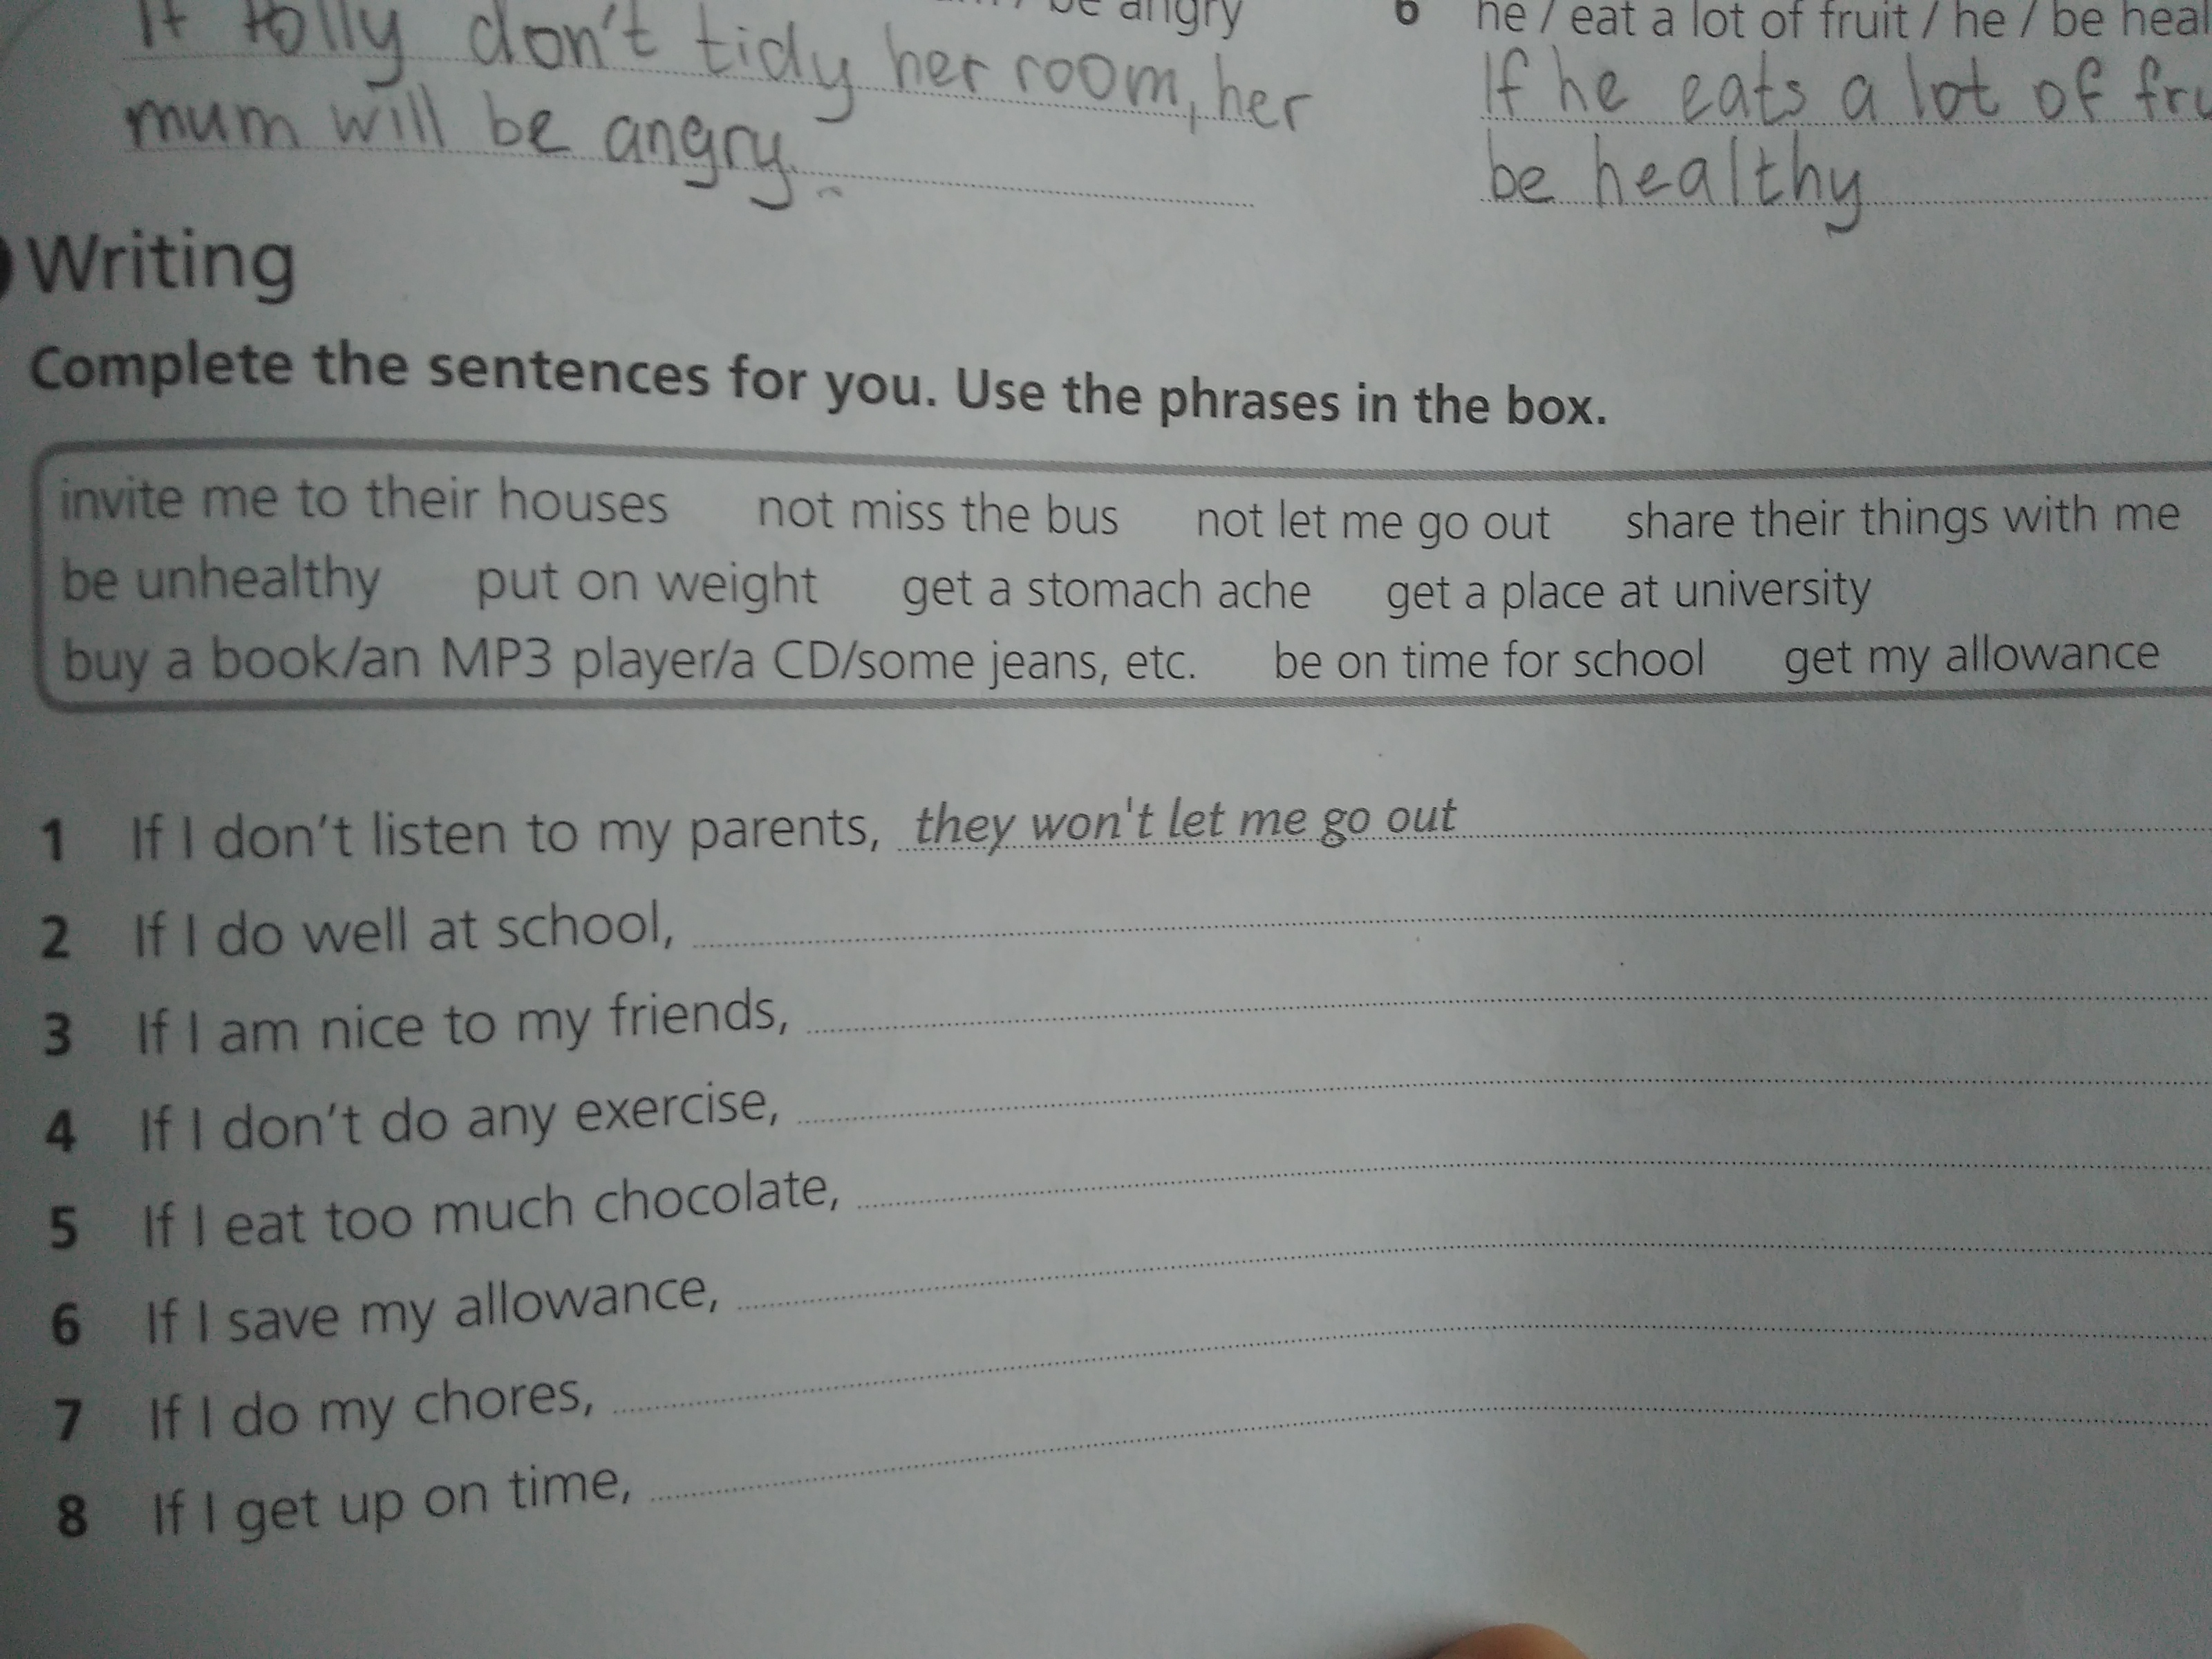 be angry
If Polly don't tidy her room, her
mum will be angry.
6 he / eat a lot of fruit / he / be
If he eats a lot of
be healthy
Writing
Complete the sentences for you. Use the phrases in the box.
invite me to their houses not miss the bus not let me go out share their things with me
be unhealthy put on weight get a stomach ache get a place at university
buy a book/an MP3 player/a CD/some jeans, etc. be on time for school get my allowance
1 If I don't listen to my parents, they won't let me go out
2 If I do well at school,
3 If I am nice to my friends,
4 If I don't do any exercise,
5 If I eat too much chocolate,
6 If I save my allowance,
7 If I do my chores,
8 If I get up on time,